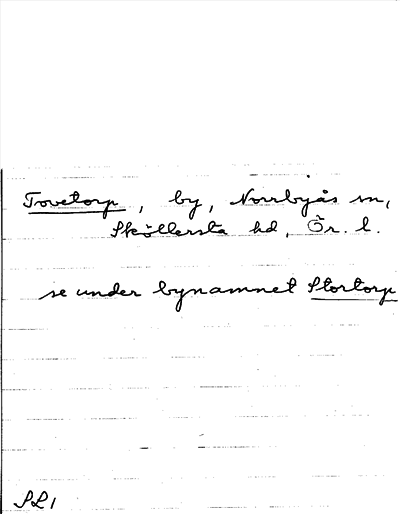 Tovetorp, by, Norrbyås sn,
Sköllersta hd, Ör. l.
se under bynamnet Stortorp